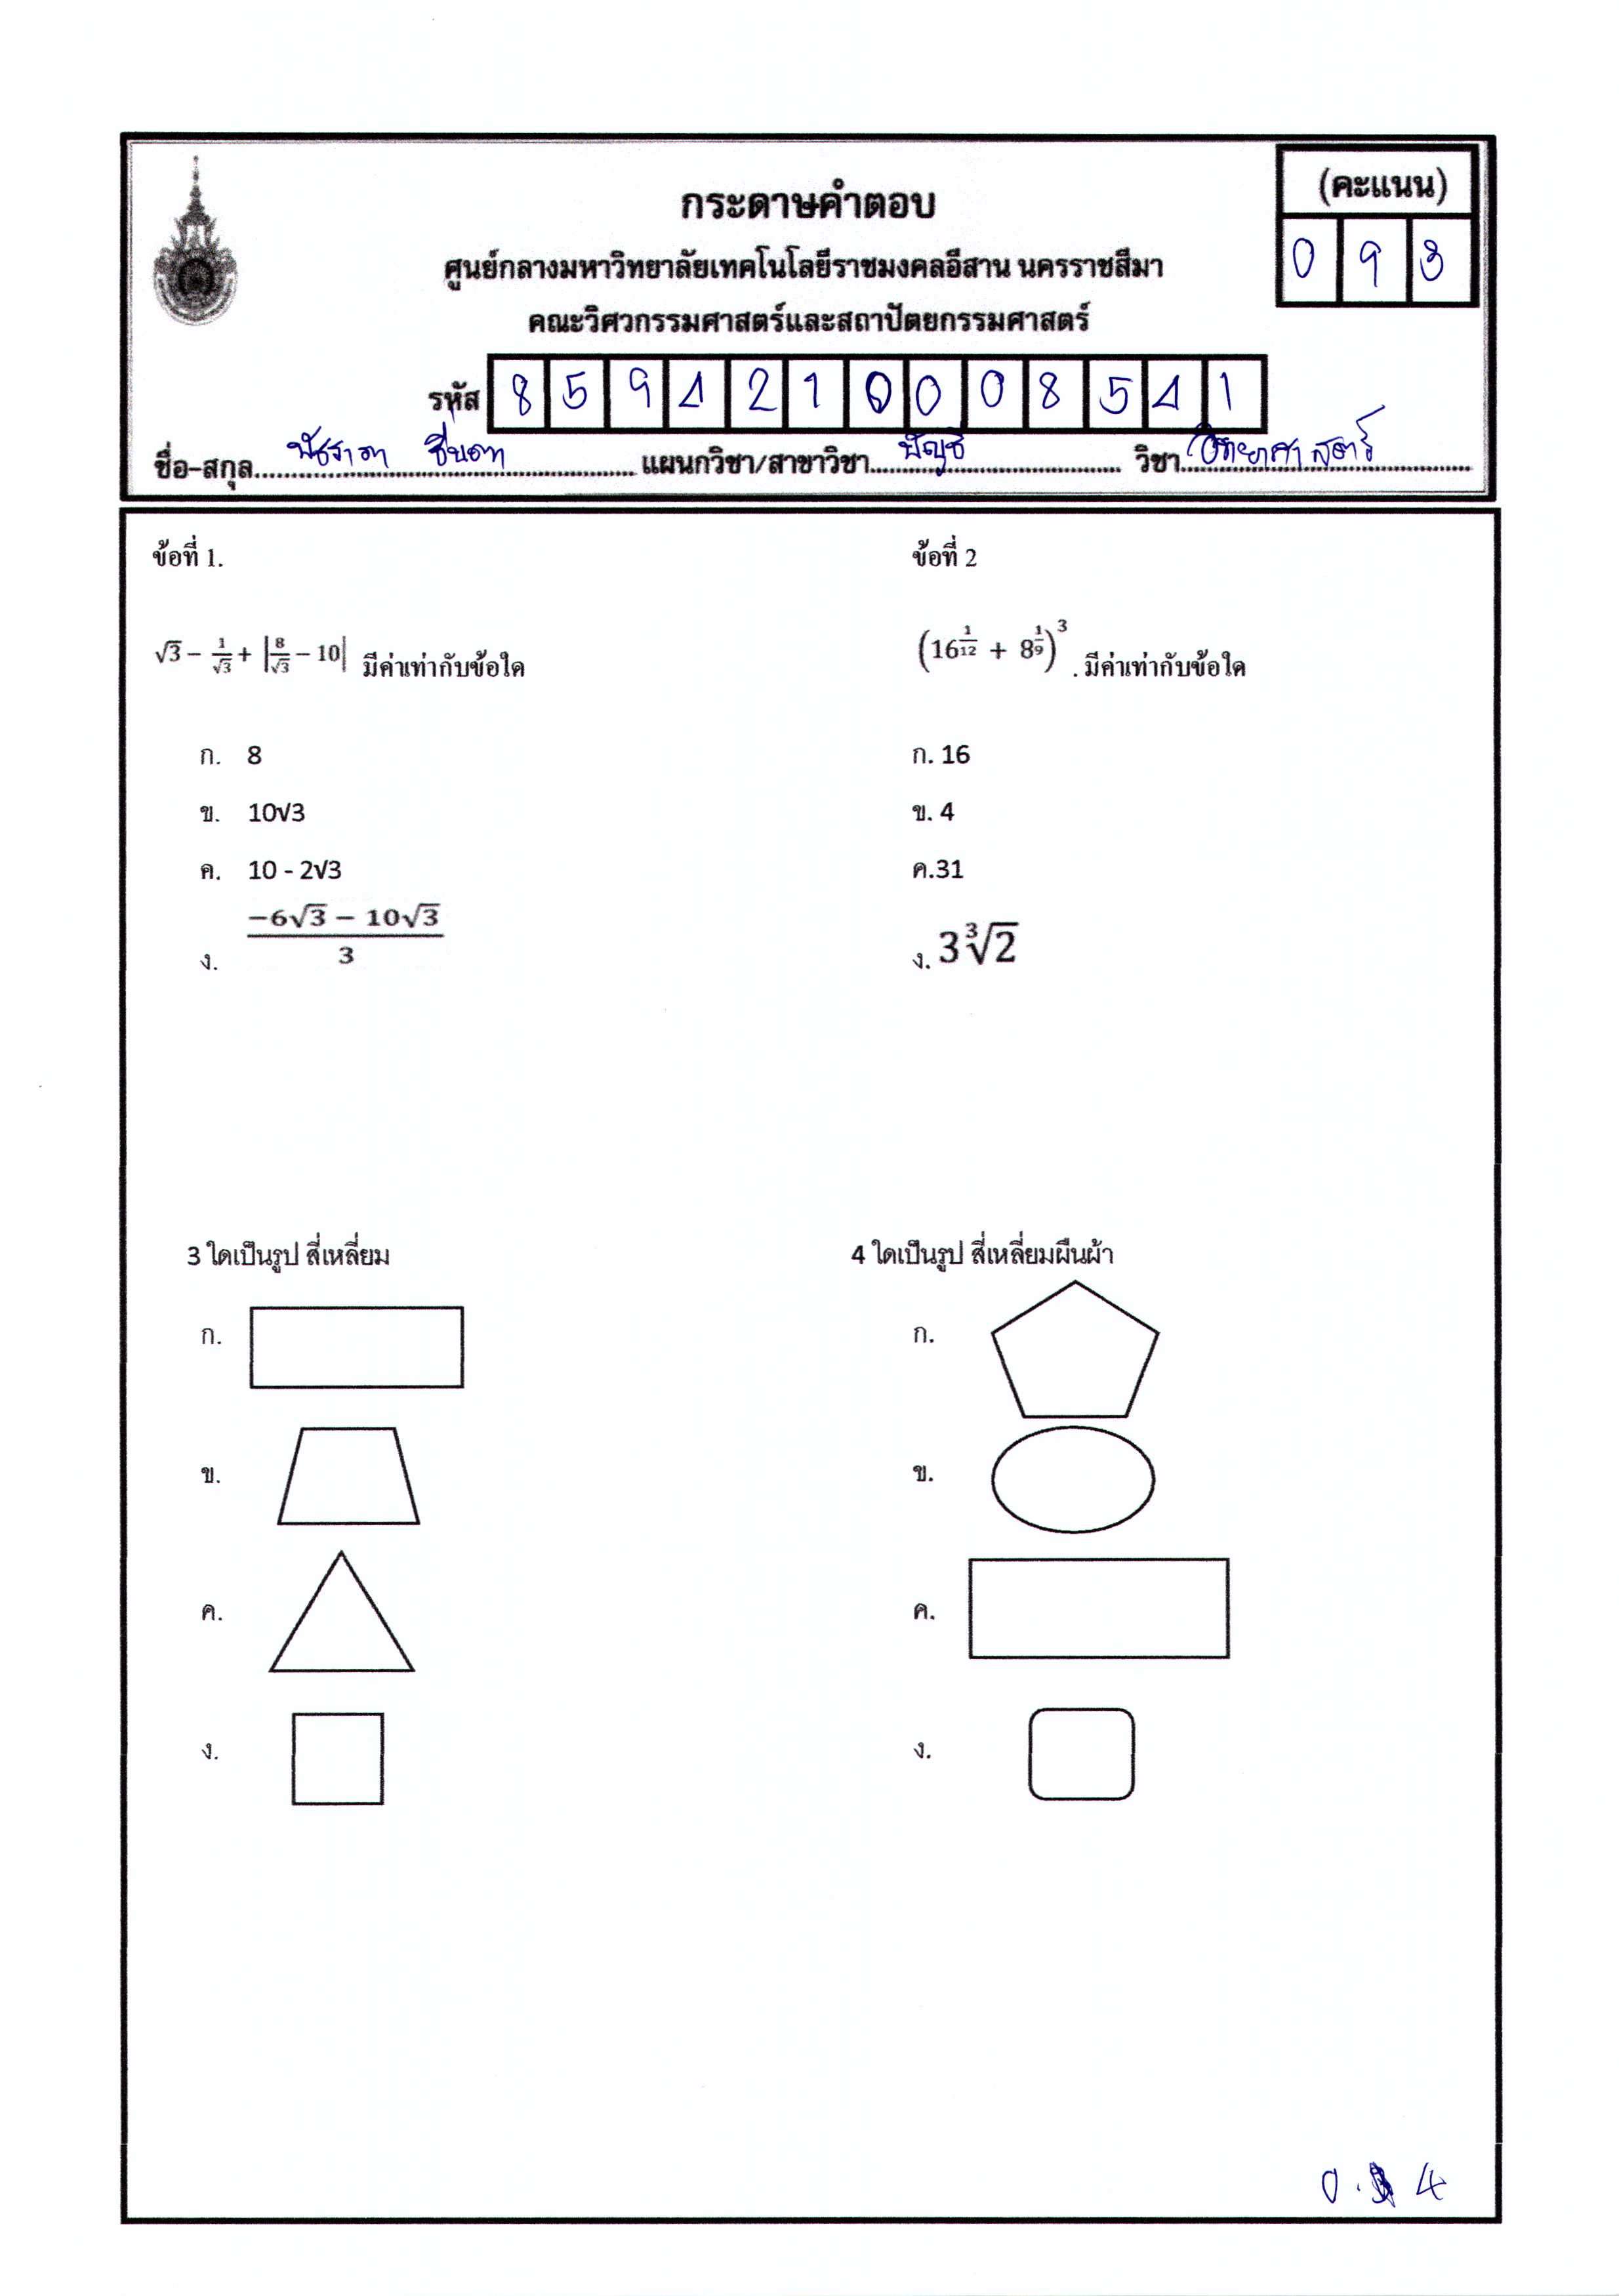 กระดาษคำตอบ
(คะแนน)
0 9 3
ศูนย์กลางมหาวิทยาลัยเทคโนโลยีราชมงคลอีสาน นครราชสีมา
คณะวิศวกรรมศาสตร์และสถาปัตยกรรมศาสตร์
รหัส 8 5 9 4 2 1 0 0 0 8 5 4 1
ชื่อ-สกุล.......... แผนกวิชา/สาขาวิชา บัญชี วิชา วิทยาศาสตร์
ข้อที่ 1.
√3 − 1/√3 + |8/√3 − 10| มีค่าเท่ากับข้อใด
ก. 8
ข. 10√3
ค. 10 - 2√3
ง. (−6√3 − 10√3)/3
ข้อที่ 2
(16^(1/12) + 8^(1/9))^3 . มีค่าเท่ากับข้อใด
ก. 16
ข. 4
ค.31
ง. 3∛2
3 ใดเป็นรูป สี่เหลี่ยม
ก.
ข.
ค.
ง.
4 ใดเป็นรูป สี่เหลี่ยมผืนผ้า
ก.
ข.
ค.
ง.